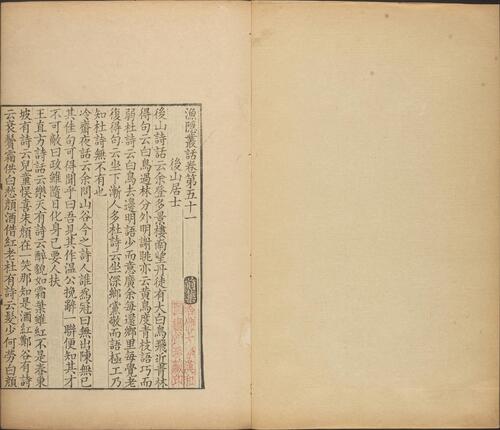 漁隱叢話卷第五十一
後山居士
後山詩話云余登多景樓南望丹徒有大白鳥飛近青林
得句云白鳥過林分外明謝朓亦云黃鳥度青枝語巧而
弱杜詩云白鳥去邊明語少而意廣余每還鄉里每覺老
復得句云坐下漸人多杜詩云坐深鄉黨敬而語極工乃
知杜詩無不有也
冷齋夜話云余問山谷今之詩人誰為冠曰無出陳無己
其佳句可得聞乎曰吾見其作溫公挽辭一聯便知其才
不可敵曰政雖隨日化身已要人扶
王直方詩話云樂天有詩云醉貌如霜葉雖紅不是春東
坡有詩云兒童悮喜朱顏在一笑那知是酒紅鄭谷有詩
云衰鬢霜供白愁顏酒借紅老杜有詩云髮少何勞白顏